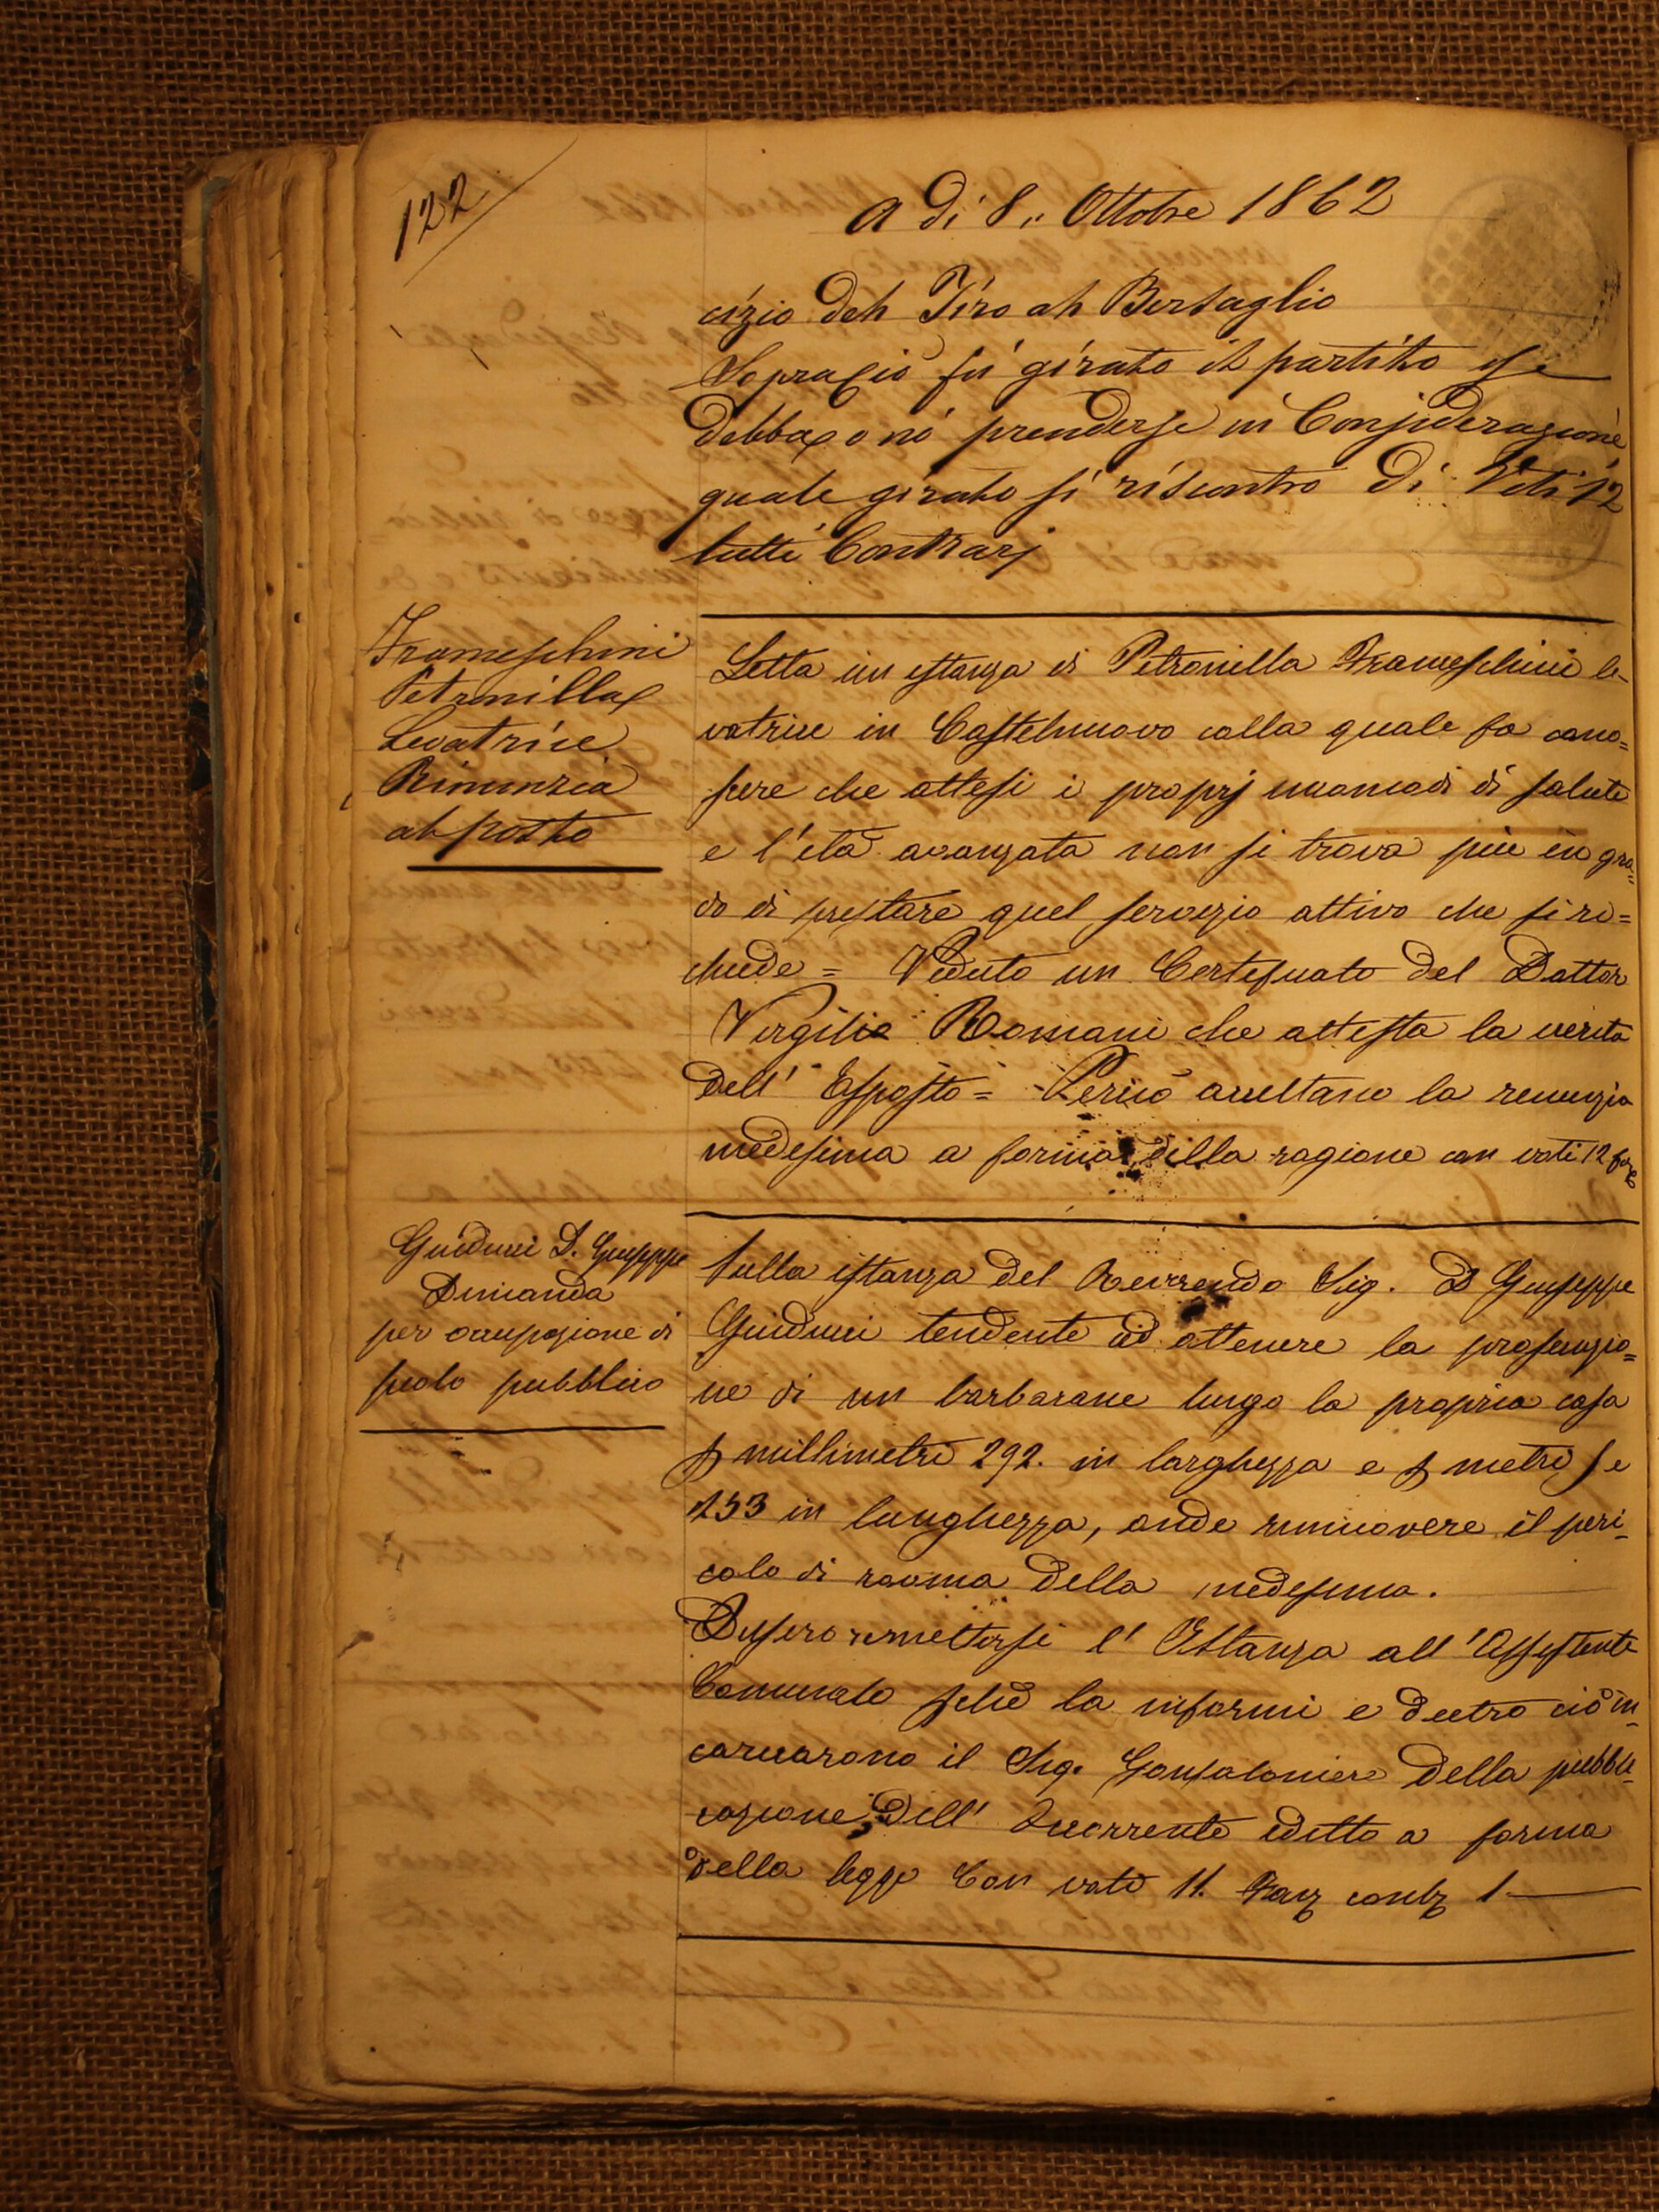 122
A dì 8,, Ottobre 1862
cizio del Tiro al Bersaglio
Sopracio fù girato il partito se
debba o nò prendersi in Considerazione
quale girato si riscontrò di Voti 12
tutti Contrarj
Franceschini
Petronilla
Levatrice
Rinunzia
al posto
Letta un istanza di Petronilla Franceschini le-
vatrice in Castelnuovo colla quale fa cono=
scere che attesi i proprj incomodi di salute
e l'età avanzata non si trova più in gra=
do di prestare quel servizio attivo che si ri=
chiede = Veduto un Certificato del Dottor
Virgilio Romani che attesta la verità
dell' Esposto = Perciò accettano la renunzia
medesima a forma della ragione con voti 12 fav
Guiducci D. Giuseppe
Dimanda
per occupazione di
suolo pubblico
Sulla istanza del Reverendo Sig. D Giuseppe
Guiducci tendente ad ottenere la
ne di un barbacane lungo la propria casa
millimetri 292. in larghezza e metri 5 e
153 in lunghezza, onde rimuovere il peri-
colo di rovina della medesima.
Disero rimettersi l' Istanza all' Assistente
Comunale la informi e dietro ciò in-
caricarono il Sig. Gonfaloniere della pubbli-
cazione dell' Occorrente editto a forma
della legge Con voti 11. Fav contr 1